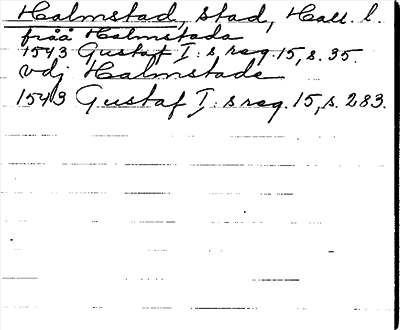 Halmstad, stad, Hall. l.
fråå Halmstada
1543 Gustaf I: s reg. 15, s. 35.
vdj Halmstade
1543 Gustaf I: s reg. 15, s. 283.